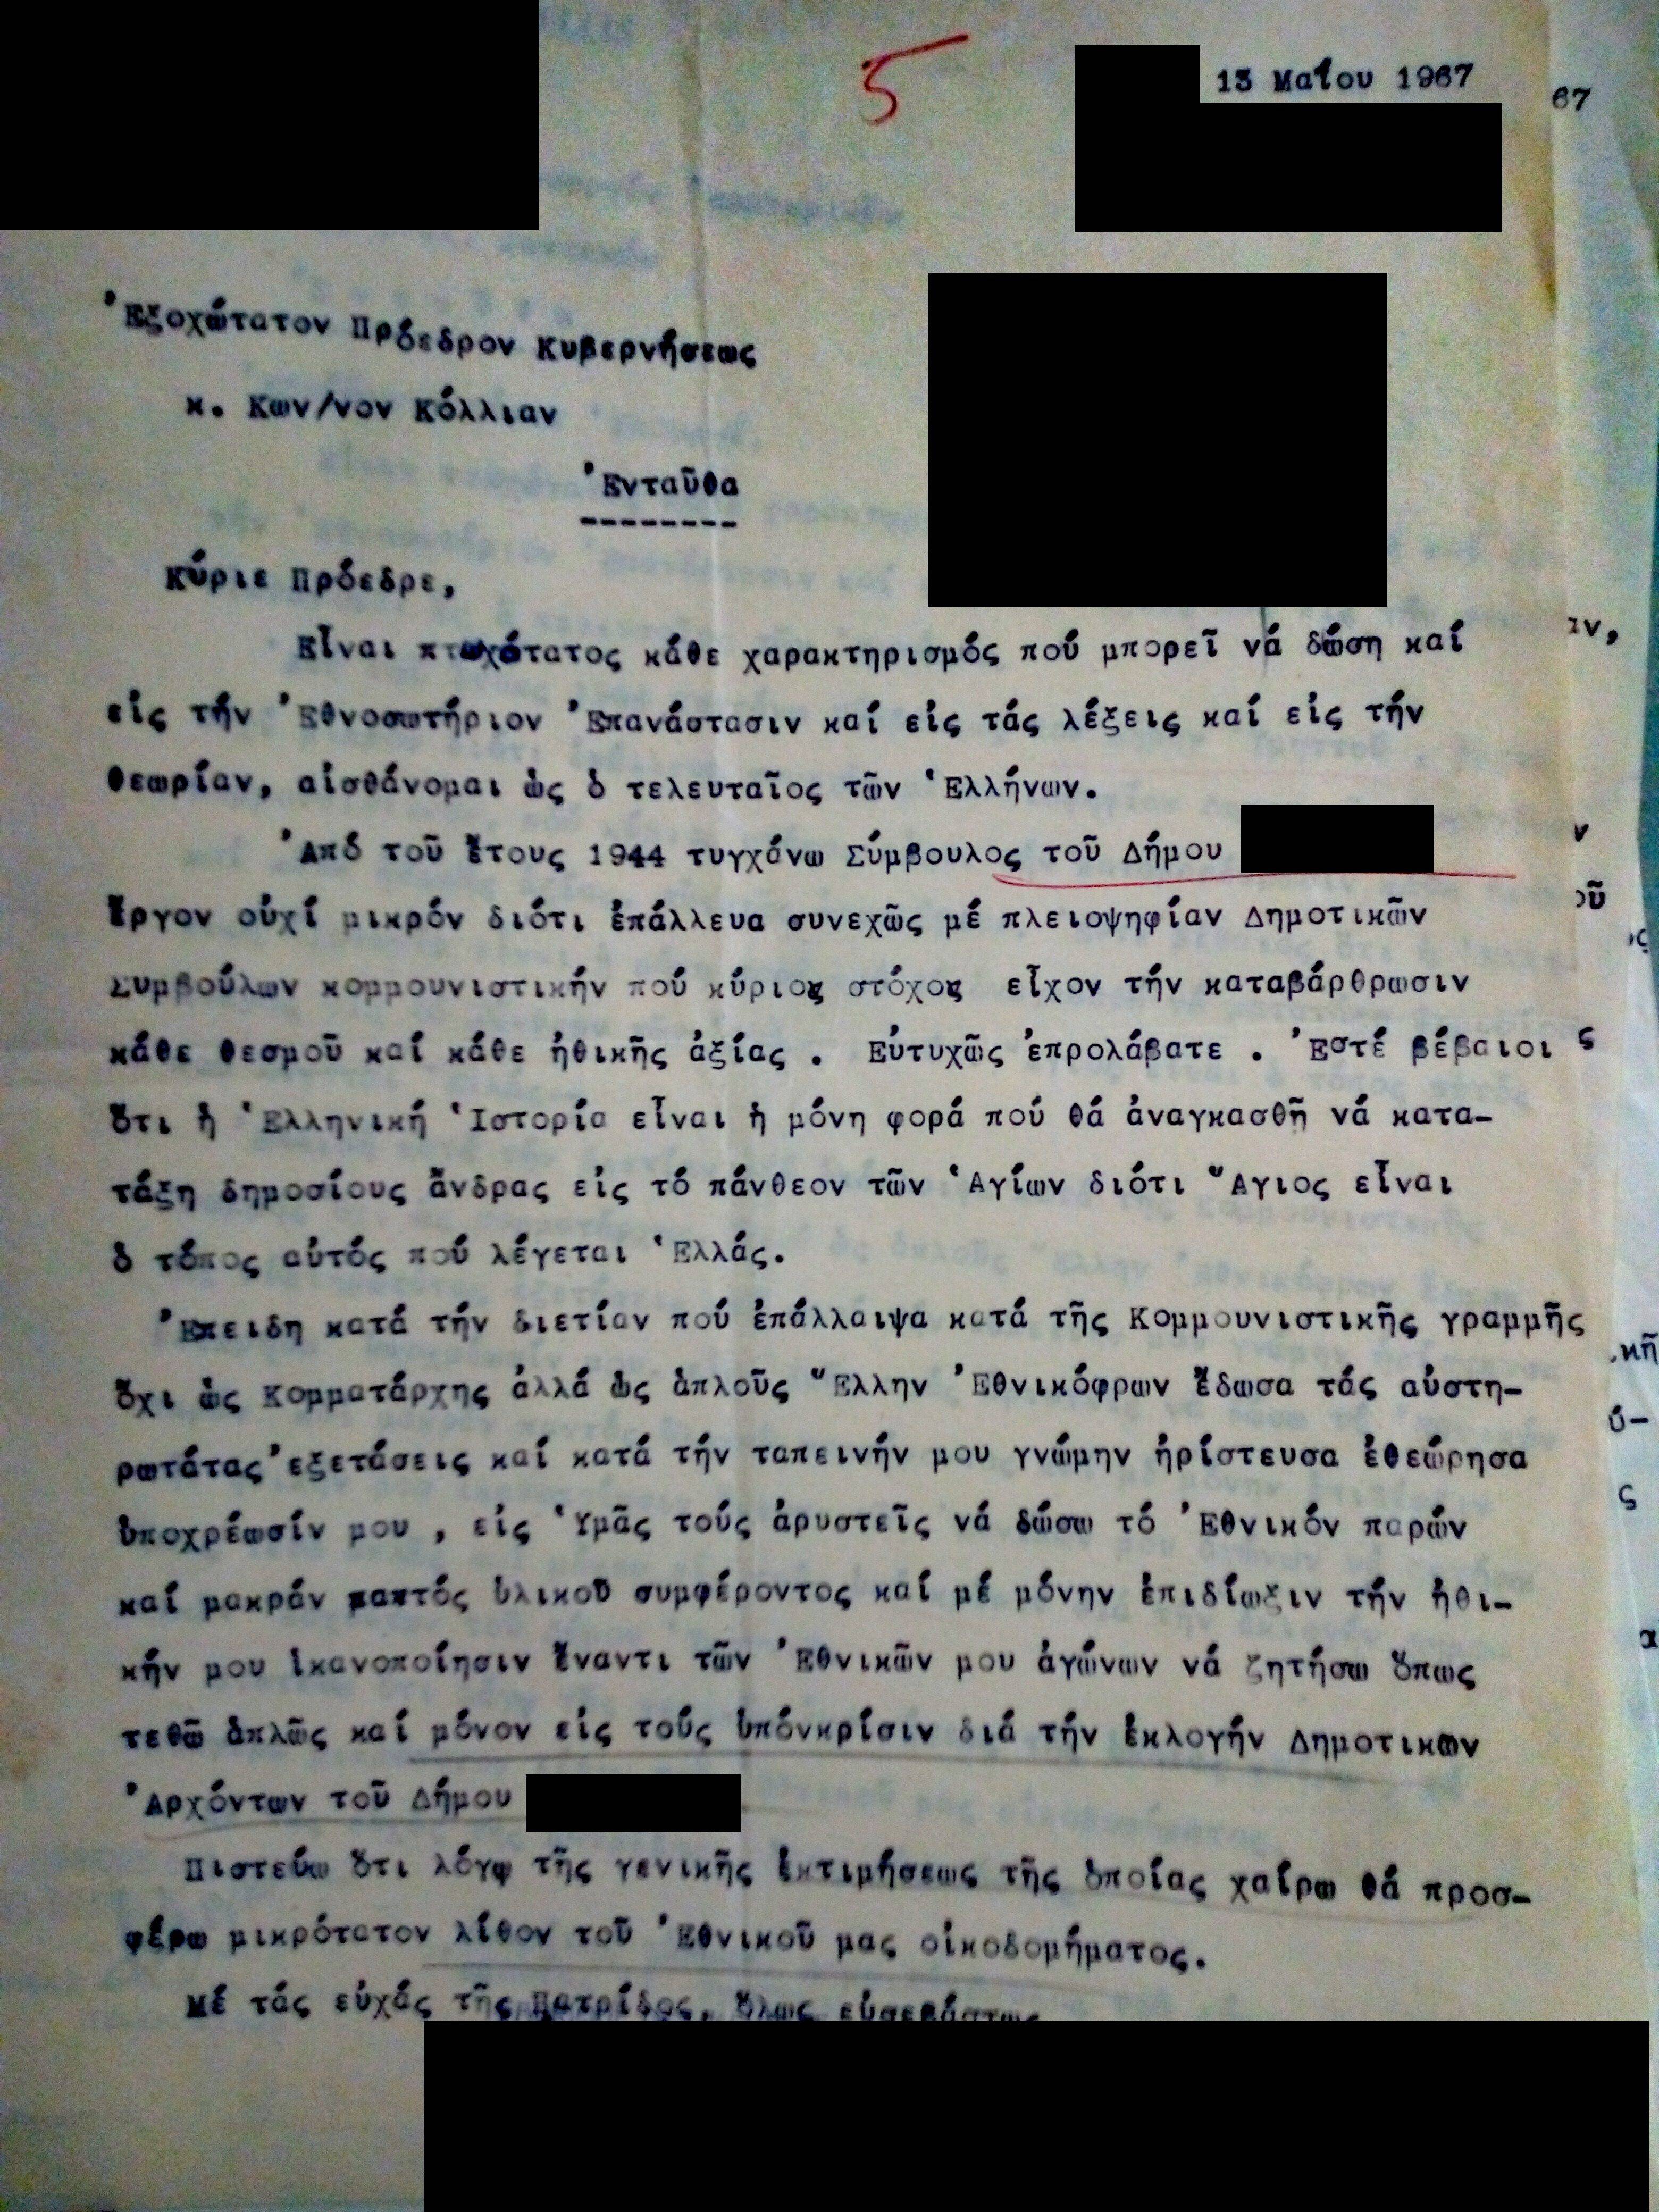 5
13 Μαΐου 1967
67
Ἐξοχώτατον Πρόεδρον Κυβερνήσεως
κ. Κων/νον Κόλλιαν
Ἐνταῦθα
--------
Κύριε Πρόεδρε,
Εἶναι πτωχότατος κάθε χαρακτηρισμός πού μπορεῖ νά δώση καί
αν,
εἰς τήν Ἐθνοσωτήριον Ἐπανάστασιν καί εἰς τάς λέξεις καί εἰς τήν
θεωρίαν, αἰσθάνομαι ὡς ὁ τελευταῖος τῶν Ἑλλήνων.
Ἀπό τοῦ ἔτους 1944 τυγχάνω Σύμβουλος τοῦ Δήμου
ν
ἔργον οὐχί μικρόν διότι ἐπάλλευα συνεχῶς μέ πλειοψηφίαν Δημοτικῶν
οῦ
Συμβούλων κομμουνιστικήν πού κύριος στόχος εἶχον τήν καταβάρθρωσιν
ς
κάθε θεσμοῦ καί κάθε ἠθικῆς ἀξίας . Εὐτυχῶς ἐπρολάβατε . Ἐστέ βέβαιοι
ς
ὅτι ἡ Ἑλληνική Ἱστορία εἶναι ἡ μόνη φορά πού θά ἀναγκασθῆ νά κατα-
τάξη δημοσίους ἄνδρας εἰς τό πάνθεον τῶν Ἁγίων διότι Ἅγιος εἶναι
ὁ τόπος αὐτός πού λέγεται Ἑλλάς.
Ἐπειδη κατά τήν διετίαν πού ἐπάλλαιψα κατά τῆς Κομμουνιστικῆς γραμμῆς
κῆ
ὄχι ὡς Κομματάρχης ἀλλά ὡς ἁπλοῦς Ἕλλην Ἐθνικόφρων ἔδωσα τάς αὐστη-
ύ-
ρωτάτας ἐξετάσεις καί κατά τήν ταπεινήν μου γνώμην ἠρίστευσα ἐθεώρησα
ς
ὑποχρέωσίν μου , εἰς Ὑμᾶς τούς ἀρυστεῖς νά δώσω τό Ἐθνικόν παρών
καί μακράν παντός ὑλικοῦ συμφέροντος καί μέ μόνην ἐπιδίωξιν τήν ἠθι-
α
κήν μου ἱκανοποίησιν ἔναντι τῶν Ἐθνικῶν μου ἀγώνων νά ζητήσω ὅπως
τεθῶ ἁπλῶς καί μόνον εἰς τούς ὑπόνκρίσιν διά τήν ἐκλογήν Δημοτικων
Ἀρχόντων τοῦ Δήμου
Πιστεύω ὅτι λόγῳ τῆς γενικῆς ἐκτιμήσεως τῆς ὁποίας χαίρω θά προσ-
φέρω μικρότατον λίθον τοῦ Ἐθνικοῦ μας οἰκοδομήματος.
Μέ τάς εὐχάς τῆς Πατρίδος, ὅλως εὐσεβάστως